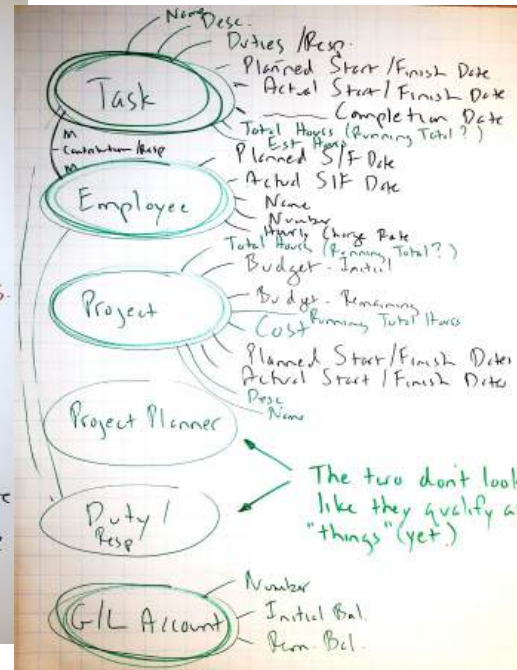 Name
Desc.
Duties /Resp.
Planned Start/Finish Date
Actual Start/Finish Date
Completion Date
Total Hours (Running Total?)
Est Hours
Task
M
Contribution/Resp
M
Planned S/F Date
Actual S/F Date
Name
Number
Hourly Charge Rate
Total Hours (Running Total?)
Employee
Budget - Initial
Budget - Remaining
Running Total Hours
Cost
Planned Start/Finish Dates
Actual Start/Finish Dates
Desc
Name
Project
Project Planner
The two don't look
like they qualify a
"things" (yet)
Duty/
Resp
Number
Initial Bal.
Rem. Bal.
G/L Account